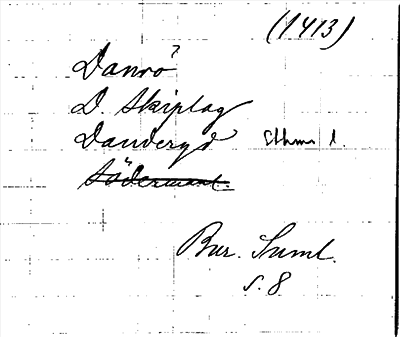 (1413)
Danrö?
D. Skiplag
Danderyd Sthms l.
Södermanl.
Bur. Suml.
s. 8